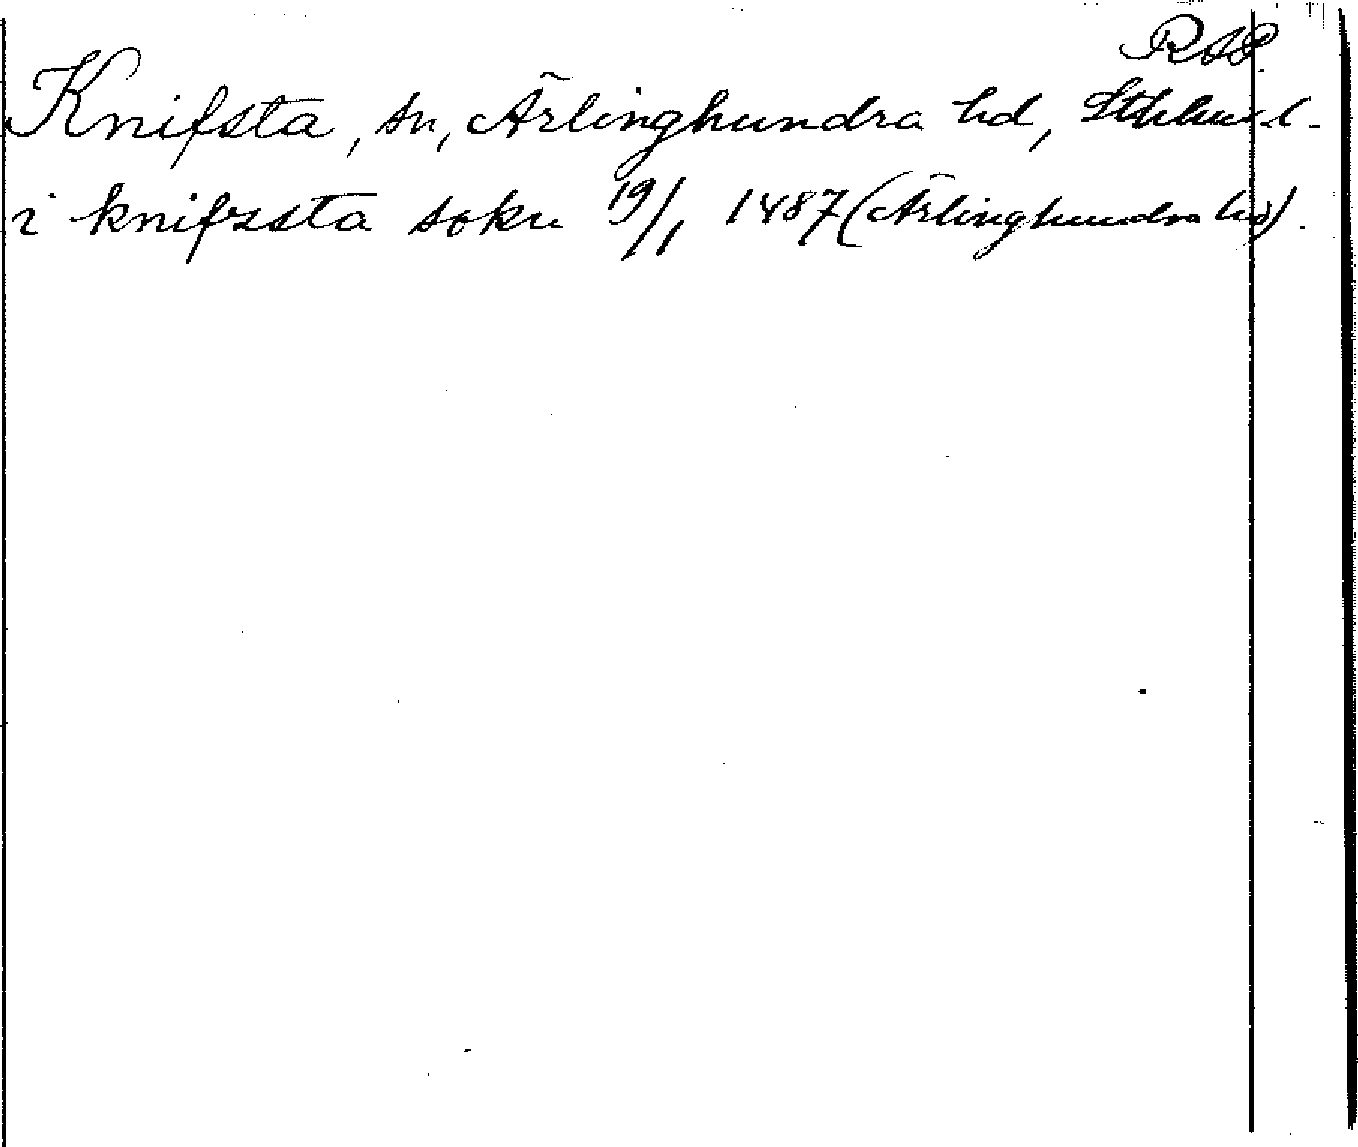 RAP.
Knifsta, sn, Ärlinghundra hd, Sthlms l.
i knifssta sokn 19/1 1487 (Ärlinghundra hd).